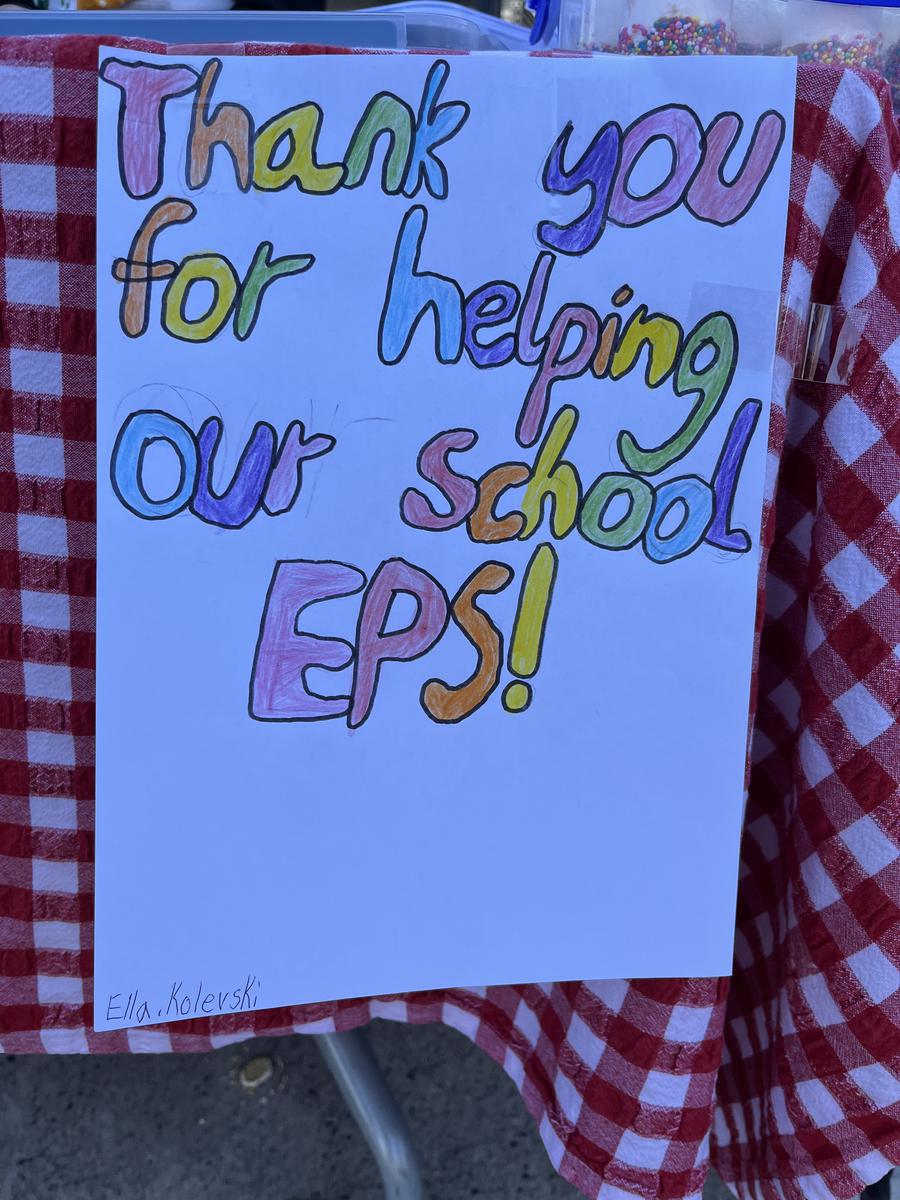 Thank you
for helping
our school
EPS!
Ella.Kolevski